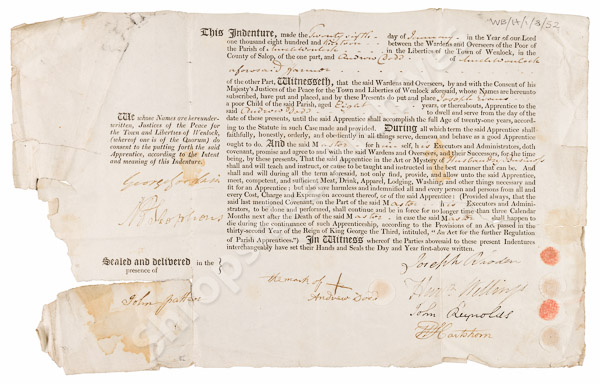 WB/H/1/8/52
This Indenture, made the Twenty fifth day of January in the Year of our Lord
one thousand eight hundred and between the Wardens and Overseers of the Poor of
the Parish of Much Wenlock in the Town and Liberties of Wenlock, in the
County of Salop, of the one part, and Andrew Dodd of Much Wenlock
aforesaid
of the other Part, Witnesseth, that the said Wardens and Overseers, by and with the Consent of his
Majesty's Justices of the Peace for the Town and Liberties of Wenlock aforesaid, whose Names are hereunto
subscribed, have put and placed, and by these Presents do put and place Joseph Evans
a poor Child of the said Parish, aged Eight Years, or thereabouts, Apprentice to the
said Andrew Dodd to dwell and serve from the day of the
date of these presents, until the said Apprentice shall accomplish the full Age of twenty-one years, accord-
ing to the Statute in such Case made and provided. During all which term the said Apprentice shall
faithfully, honestly, orderly, and obediently in all things serve, demean and behave as a good Apprentice
ought to do. And the said Master for himself, his Executors and Administrators, doth
covenant, promise and agree to and with the said Wardens and Overseers, and their Successors, for the time
being, by these presents, That the said Apprentice in the Art or Mystery of Husbandry Business
shall and will teach and instruct, or cause to be taught and instructed in the best manner that he can. And
shall and will during all the term aforesaid, not only find, provide, and allow unto the said Apprentice,
meet, competent, and sufficient Meat, Drink, Apparel, Lodging, Washing, and other things necessary and
fit for an Apprentice; but also save harmless and indemnified all and every person and persons from all and
every Cost, Charge and Expense on account thereof, or of the said Apprentice: (Provided always, that the
said last mentioned Covenant, on the Part of the said Master his Executors and Admini-
strators, to be done and performed, shall continue and be in force for no longer time than three Calendar
Months next after the Death of the said Master in case the said Master shall happen to
die during the continuance of such Apprenticeship, according to the Provisions of an Act passed in the
thirty-second Year of the Reign of King George the Third, intituled, "An Act for the further Regulation
of Parish Apprentices.") In Witness whereof the Parties abovesaid to these present Indentures
interchangeably have set their Hands and Seals the Day and Year first-above written.
WE whose Names are hereunder-
written, Justices of the Peace for
the Town and Liberties of Wenlock,
(whereof one is of the Quorum) do
consent to the putting forth the said
Apprentice, according to the Intent
and meaning of this Indenture.
Sealed and delivered in the
presence of
the mark of
Andrew Dodd
John Reynolds
Hartshorn